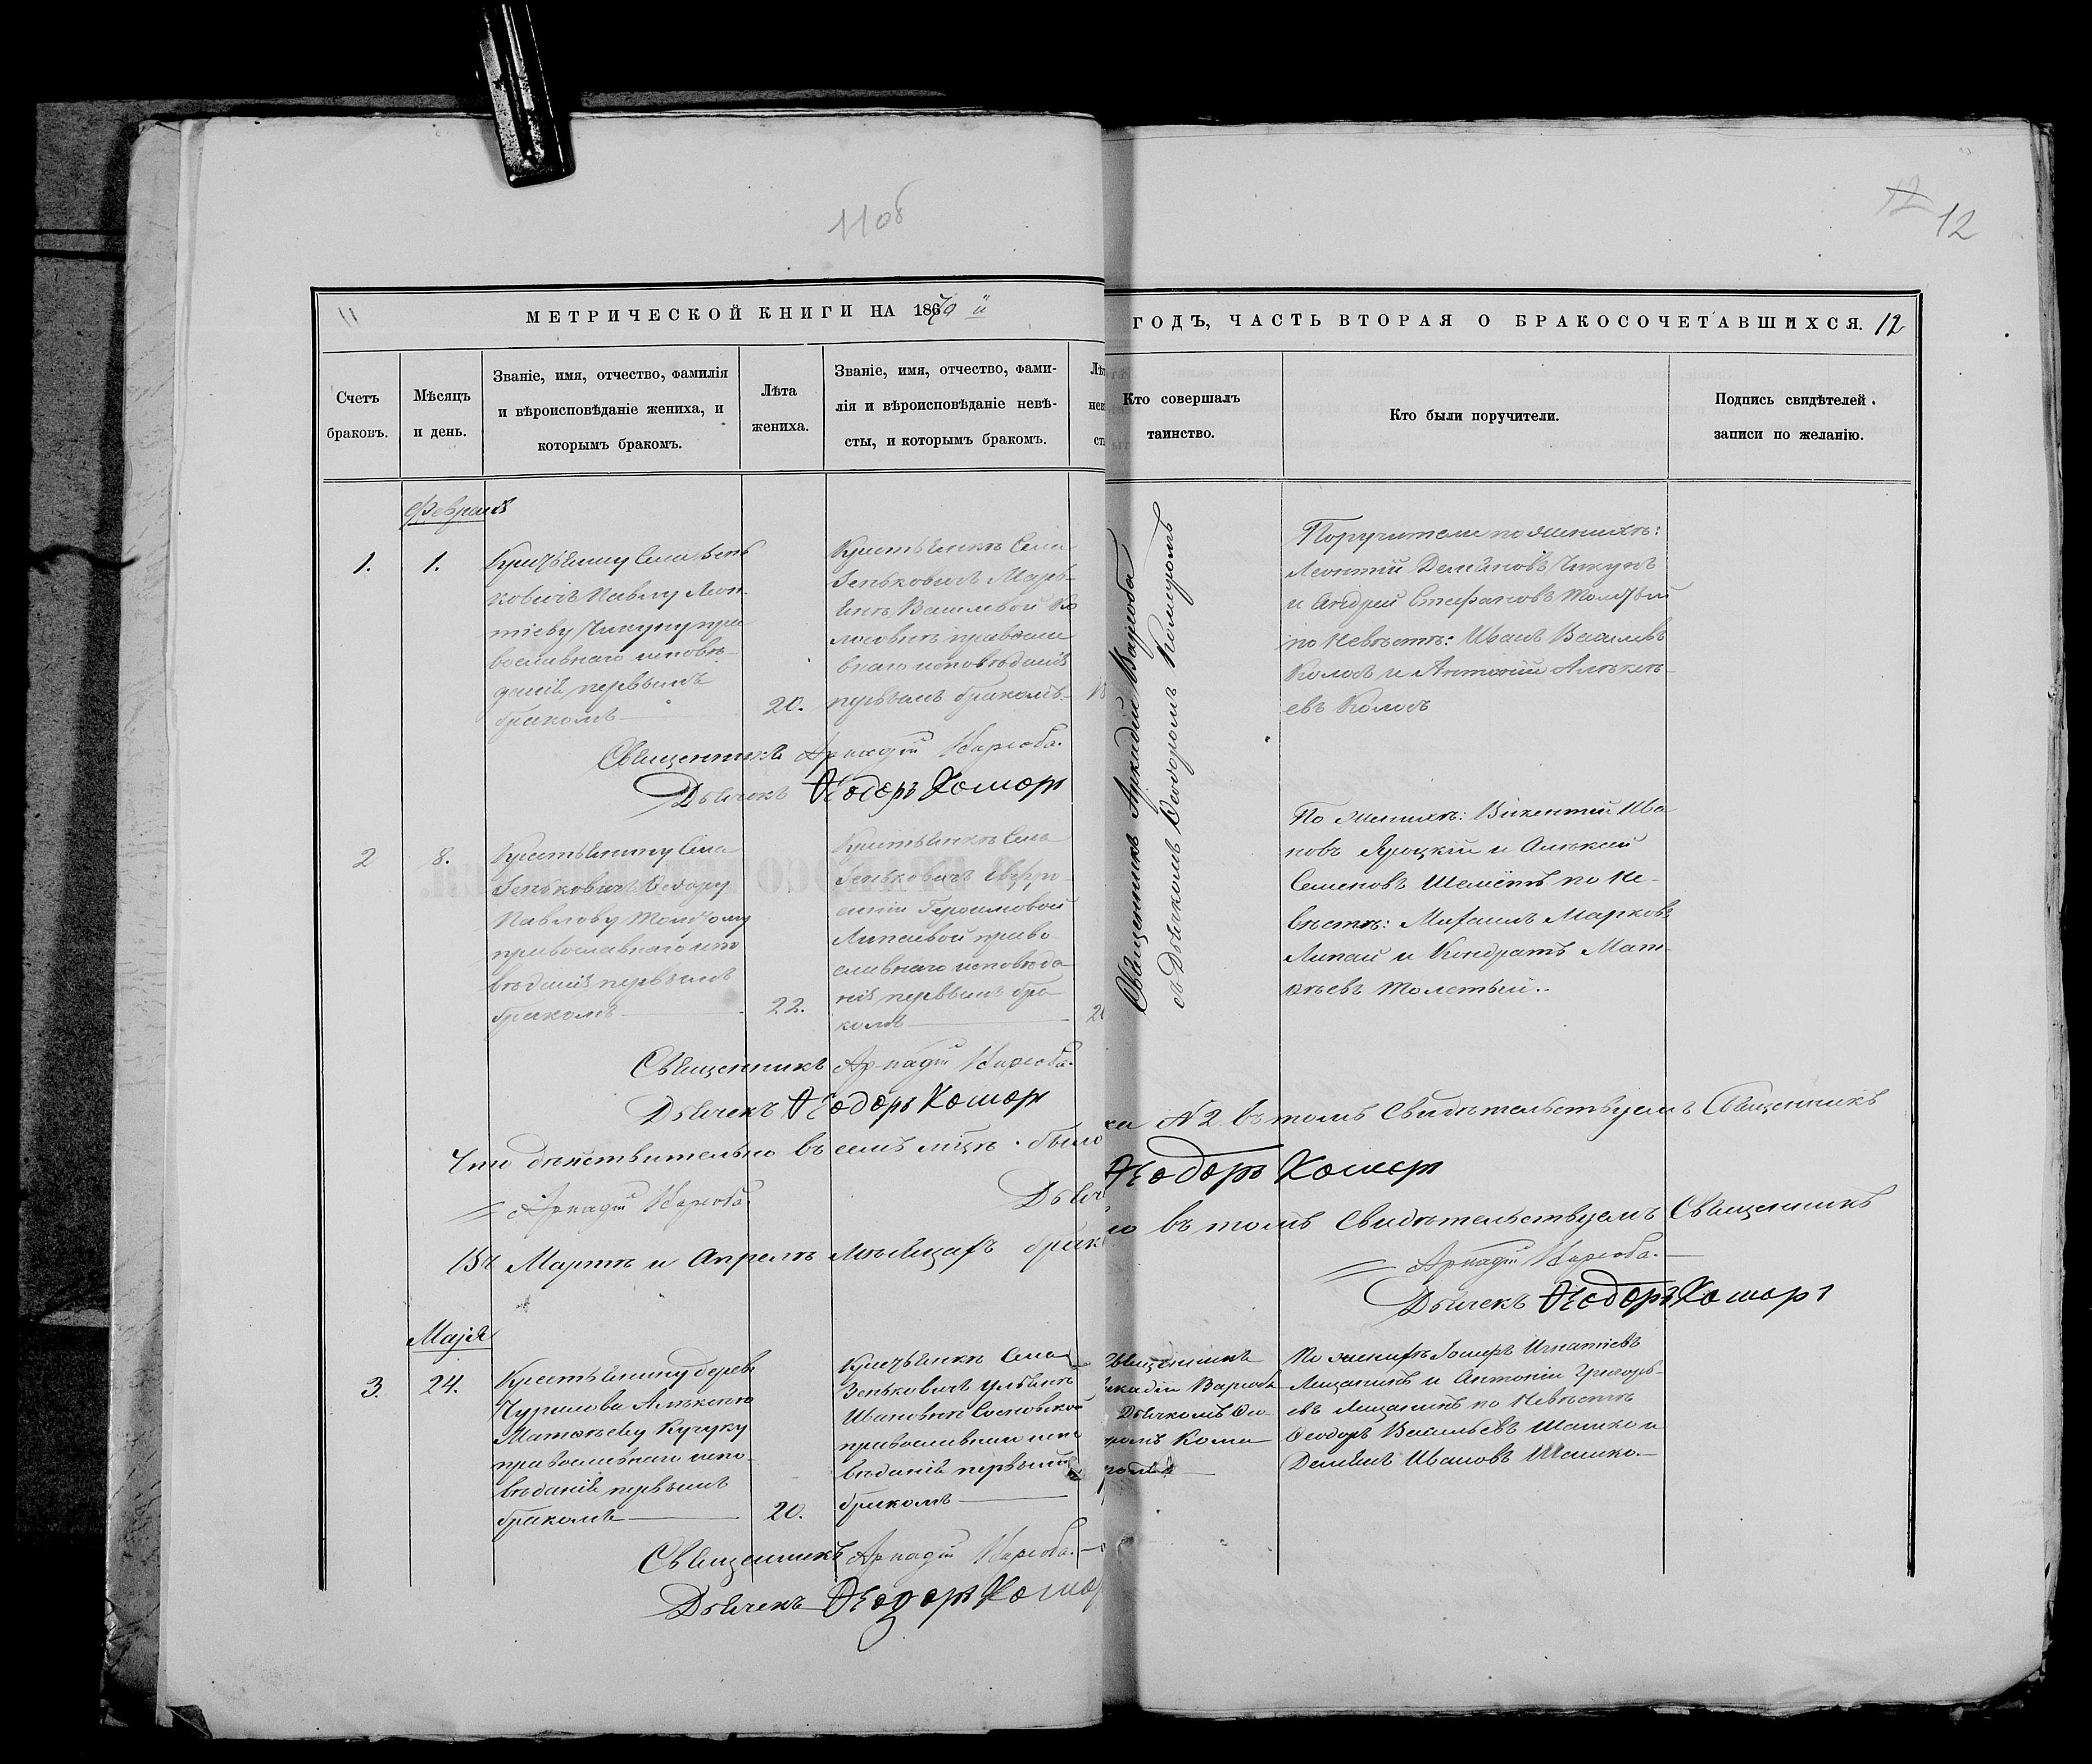 11об
12
12
11
МЕТРИЧЕСКОЙ КНИГИ НА 1870й
ГОДЪ, ЧАСТЬ ВТОРАЯ О БРАКОСОЧЕТАВШИХСЯ. 12
Счетъ
браковъ.
Мѣсяцъ
и день.
Званіе, имя, отчество, фамилія
и вѣроисповѣданіе жениха, и
которымъ бракомъ.
Лѣта
жениха.
Званіе, имя, отчество, фами-
лія и вѣроисповѣданіе невѣ-
сты, и которымъ бракомъ.
Кто совершалъ
таинство.
Кто были поручители.
Подпись свидѣтелей
записи по желанію.
Февраля
1.
1.
Крестьянину Села Зень
ковичъ Павлу Леон
тіеву Чикуну пра
вославнаго исповѣ-
данія первымъ
бракомъ
20.
Крестьянкѣ Села
Зеньковичъ Марь-
янѣ Василевой Ко
лосовнѣ правосла
внаго исповѣданія
первымъ бракомъ.
Священникъ Аркадій Варгоба
съ Дьячкомъ Ѳеодоромъ Комаромъ
Поручители по женихѣ:
Леонтій Демяновъ Чикунъ
и Андрей Стефановъ Толстый
по невѣстѣ: Иванъ Василевъ
Колосъ и Антоній Алѣксѣ-
евъ Колосъ
Священникъ Аркадій Варгоба.
Дьячекъ Ѳеодоръ Комаръ
2
8.
Крестьянину Села
Зеньковичъ Ѳеодору
Павлову Толстому
православнаго испо
вѣданія первымъ
бракомъ
22.
Крестьянкѣ Села
Зеньковичъ Евфро
синіи Герасимовой
Липаевой право
славнаго исповѣда
нія первымъ бра
комъ
По женихѣ: Викентій Ива
новъ Яроцкій и Алѣксѣй
Семеновъ Шеметъ по не-
вѣстѣ: Михаилъ Марковъ
Липай и Кондратъ Мат-
ѳѣевъ Толстый..
Священникъ Аркадій Варгоба.
Дьячекъ Ѳеодоръ Комаръ
Что дѣйствительно въ семъ мѣсяцѣ было
№2 въ томъ свидѣтельствуемъ Священникъ
Аркадій Варгоба.
Ѳеодоръ Комаръ
Въ Мартѣ и Апрелѣ Мѣсяцахъ брак
въ томъ свидѣтельствуемъ Священникъ
Аркадій Варгоба.
Дьячекъ Ѳеодоръ Комаръ
Маія
3.
24.
Крестьянину дерев
Чурилова Алѣксѣю
Матѳѣеву Кучуку
православнаго испо-
вѣданія первымъ
бракомъ
20.
Крестьянкѣ Села
Зеньковичъ Ульянѣ
Ивановнѣ Сосновской
православнаго испо
вѣданія первымъ
бракомъ
Священникъ
Аркадій Варгоба
Дьячкомъ Ѳео-
доромъ Кома
ромъ
По женихѣ Іосифъ Игнатіевъ
Мицанинъ и Антоній Григорь-
евъ Мицанинъ по невѣстѣ
Ѳеодоръ Васильевъ Шашко и
Демянъ Ивановъ Шашко.
Священникъ Аркадій Варгоба.
Дьячекъ Ѳеодоръ Комаръ